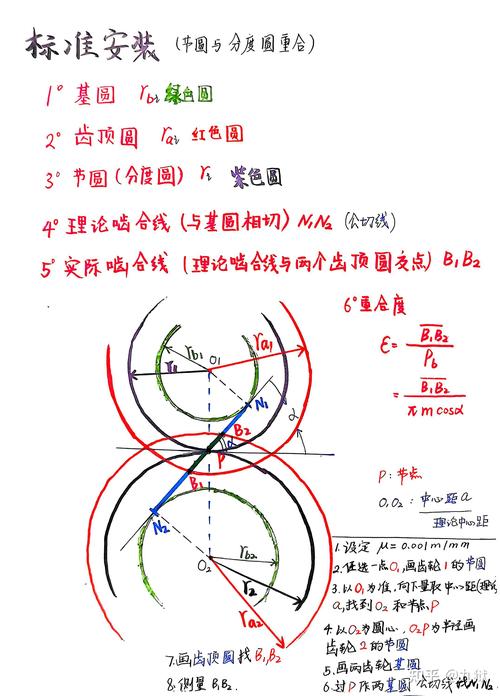 标准安装 (节圆与分度圆重合)
1° 基圆 rb: 绿色圆
2° 齿顶圆 ra: 红色圆
3° 节圆(分度圆) r: 紫色圆
4° 理论啮合线(与基圆相切) N1N2 (公切线)
5° 实际啮合线(理论啮合线与两个齿顶圆交点) B1B2
6° 重合度
ε = B1B2 / Pb
= B1B2 / πmcosα
rb1
O1
ra1
r1
N1
B2
α
α
P
B1
N2
rb2
O2
r2
ra2
P: 节点
O1O2: 中心距a
理论中心距
1. 设定 μ = 0.001 m/mm
2. 任选一点O1画齿轮1的节圆
3. 以O1为准,向下量取中心距(理论)
a,找到O2和节点P
4. 以O2为圆心,O2P为半径画
齿轮2的节圆
5. 画两齿轮基圆
6. 过P作两基圆公切线找N1N2
7. 画齿顶圆找B1B2
8. 测量B1B2
知乎